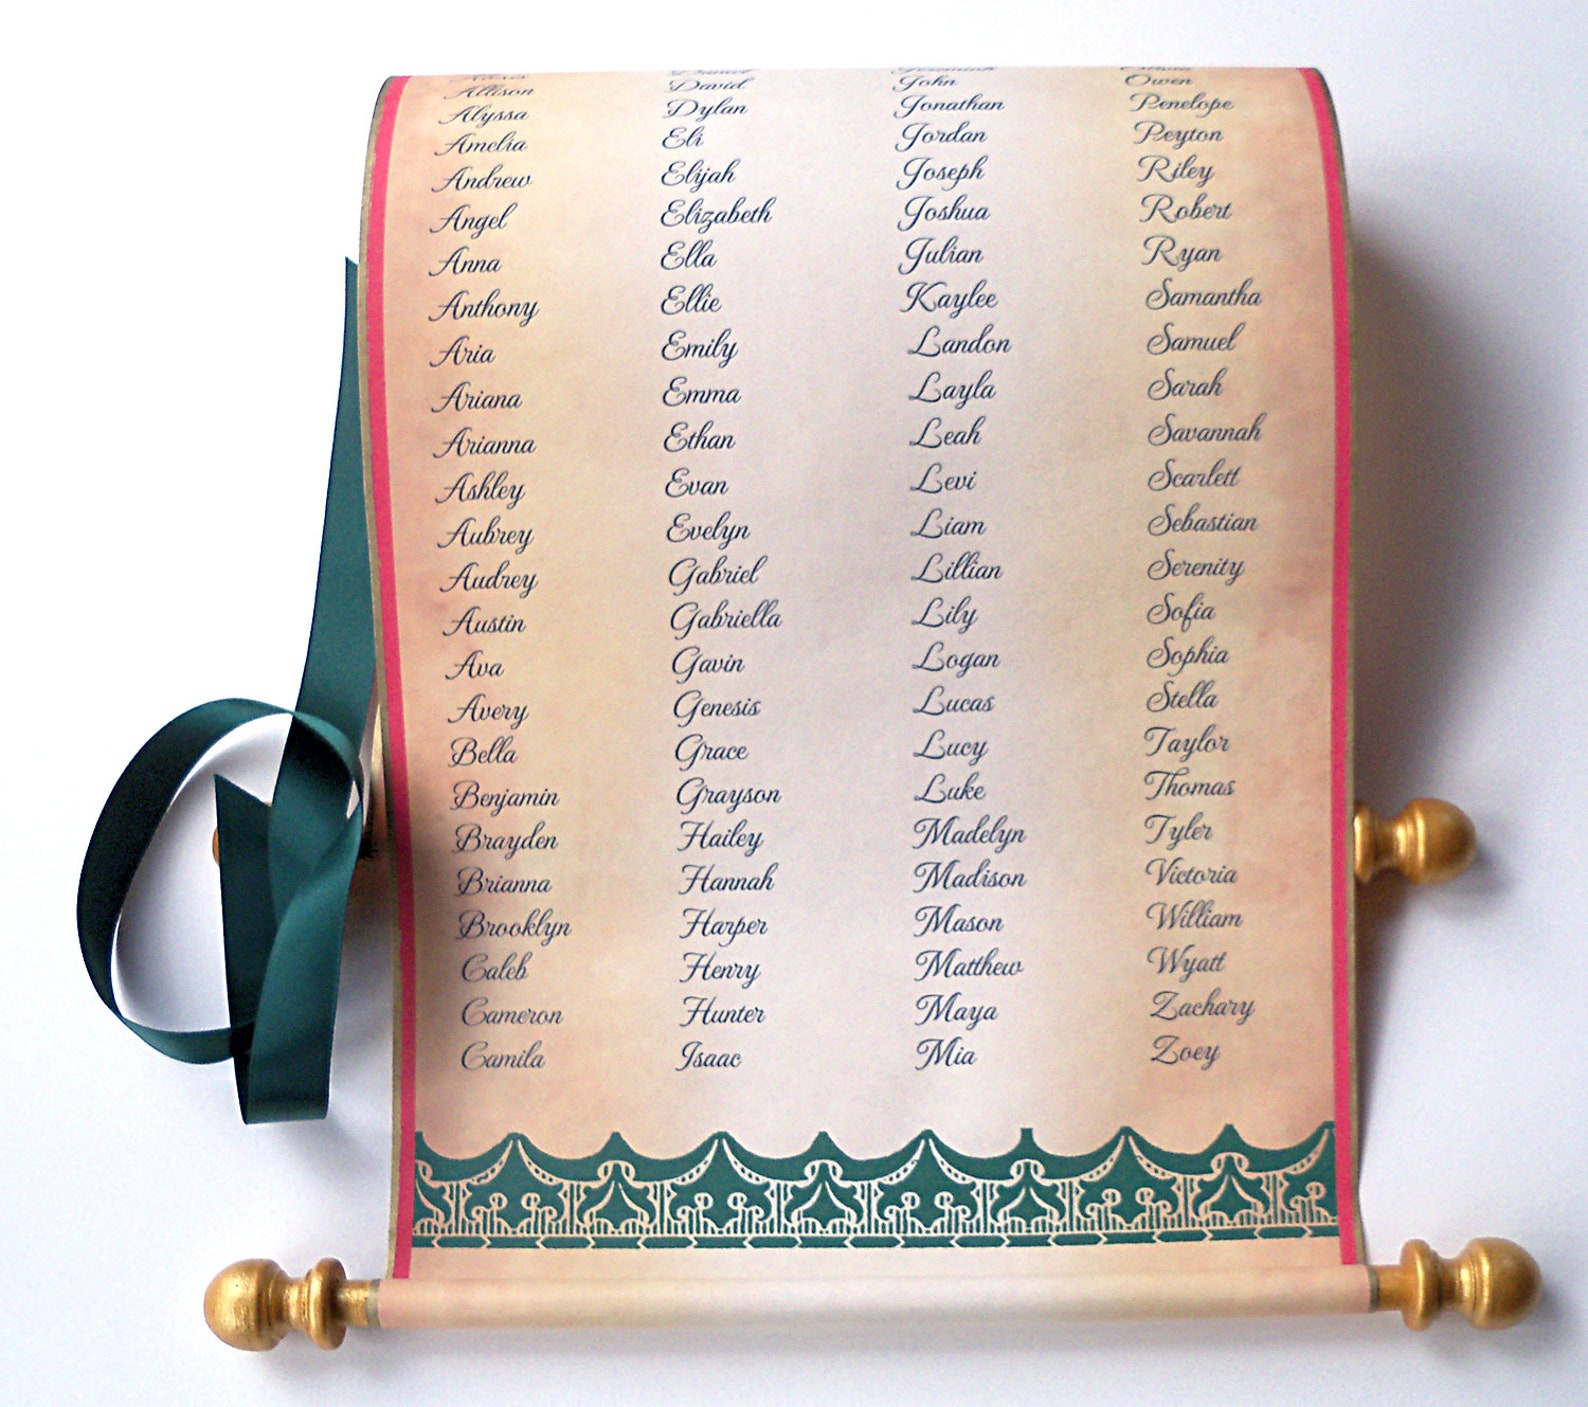 Allison
Alyssa
Amelia
Andrew
Angel
Anna
Anthony
Aria
Ariana
Arianna
Ashley
Aubrey
Audrey
Austin
Ava
Avery
Bella
Benjamin
Brayden
Brianna
Brooklyn
Caleb
Cameron
Camila
David
Dylan
Eli
Elijah
Elizabeth
Ella
Ellie
Emily
Emma
Ethan
Evan
Evelyn
Gabriel
Gabriella
Gavin
Genesis
Grace
Grayson
Hailey
Hannah
Harper
Henry
Hunter
Isaac
John
Jonathan
Jordan
Joseph
Joshua
Julian
Kaylee
Landon
Layla
Leah
Levi
Liam
Lillian
Lily
Logan
Lucas
Lucy
Luke
Madelyn
Madison
Mason
Matthew
Maya
Mia
Owen
Penelope
Peyton
Riley
Robert
Ryan
Samantha
Samuel
Sarah
Savannah
Scarlett
Sebastian
Serenity
Sofia
Sophia
Stella
Taylor
Thomas
Tyler
Victoria
William
Wyatt
Zachary
Zoey